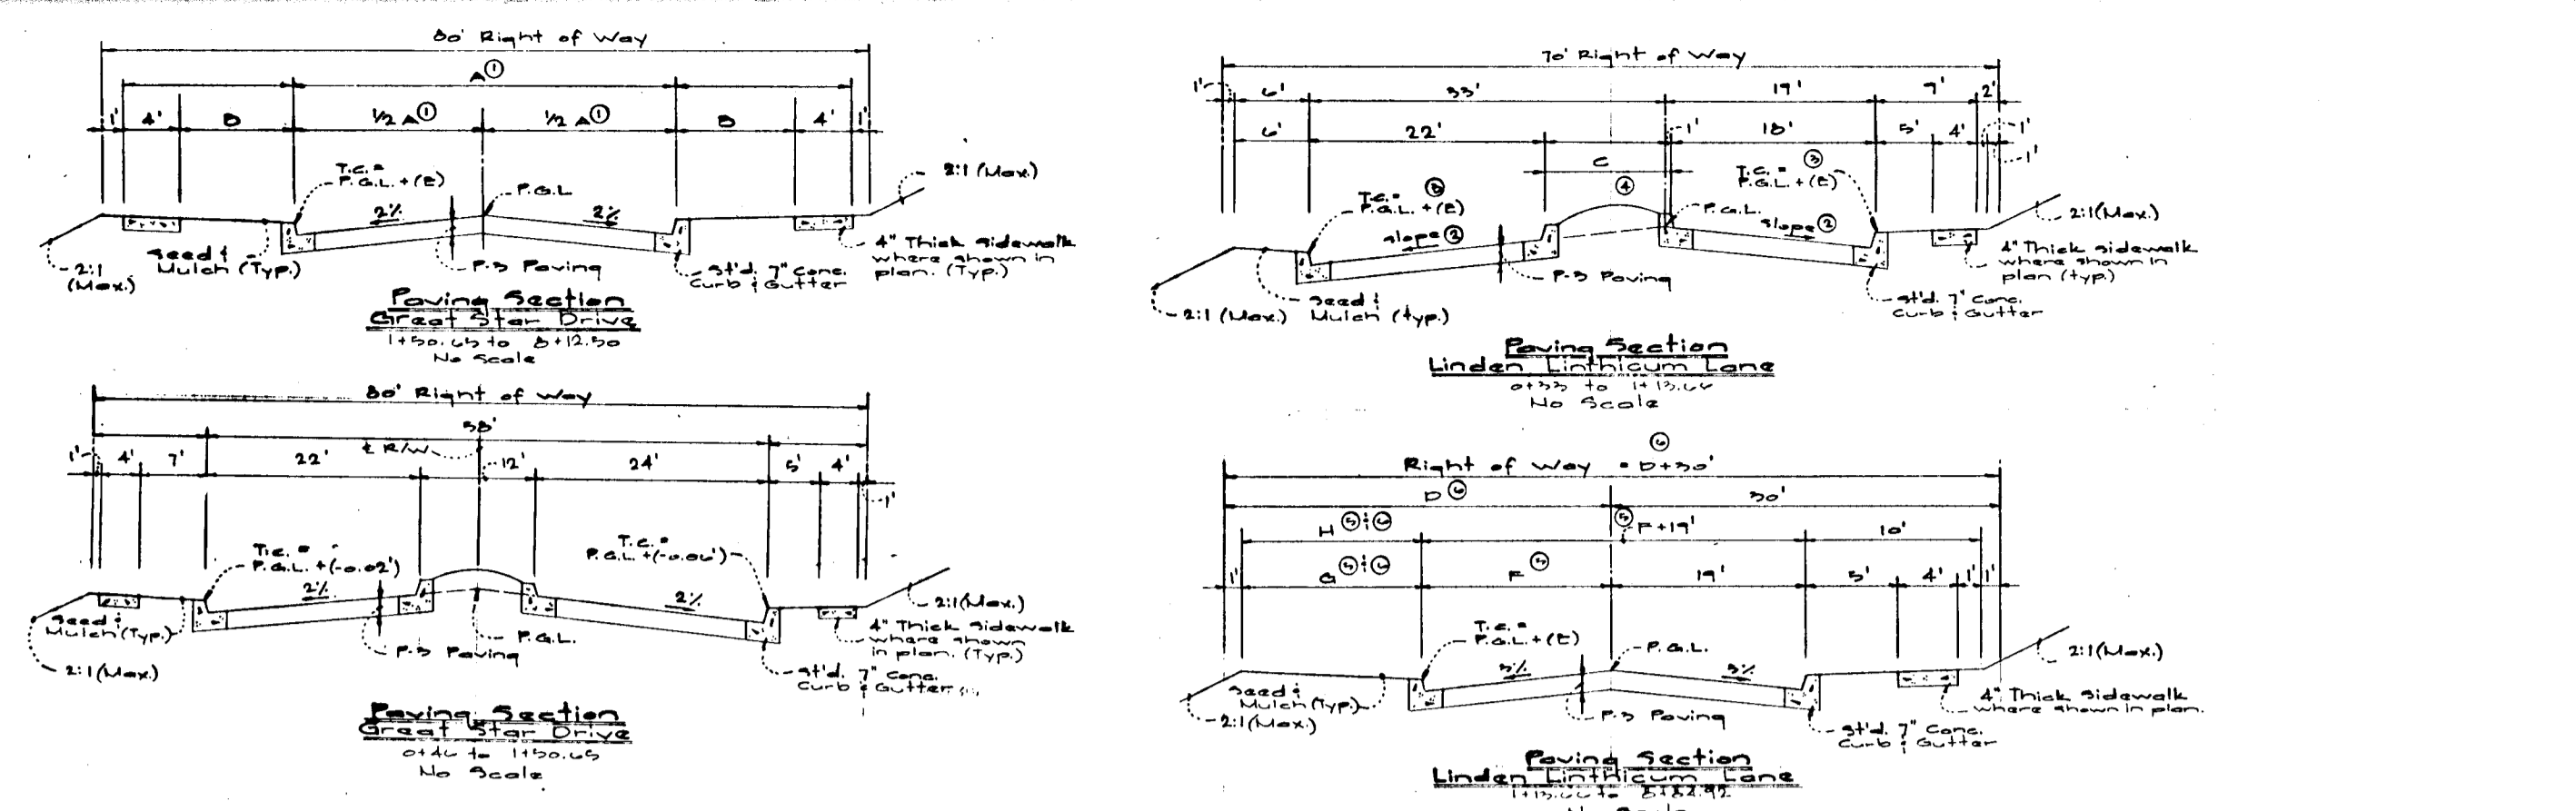 80' Right of Way
A①
1' 4' B ½ A① ½ A① B 4' 1'
T.C. =
P.G.L. + (E)
P.G.L.
2:1 (Max.)
2% 2%
Seed &
Mulch (Typ.)
2:1
(Max.)
P-3 Paving
St'd. 7" Conc.
Curb & Gutter
4" Thick Sidewalk
where shown in
plan. (Typ.)
Paving Section
Great Star Drive
No Scale
80' Right of Way
58'
℄ R/W
1' 4' 7' 22' 12' 24' 5' 4'
1'
T.C. =
P.G.L. + (-0.02')
T.C. =
P.G.L. + (-0.06')
2% 2%
2:1 (Max.)
Seed &
Mulch (Typ.)
2:1 (Max.)
P-3 Paving
P.G.L.
St'd. 7" Conc.
Curb & Gutter
4" Thick Sidewalk
where shown
in plan. (Typ.)
Paving Section
Great Star Drive
0+46 to 1+50.65
No Scale
70' Right of Way
1' 6' 33' 19' 7' 2'
6' 22' 1' 18' 5' 4' 1'
1'
C
④
T.C. = ③
P.G.L. + (E)
T.C. = ③
P.G.L. + (E)
P.G.L.
slope ② slope ②
2:1 (Max.)
P-3 Paving
Seed &
Mulch (typ.)
2:1 (Max.)
4" Thick Sidewalk
where shown in
plan (typ.)
St'd. 7" Conc.
Curb & Gutter
Paving Section
Linden Linthicum Lane
0+33 to 1+13.66
No Scale
Right of Way = D+30' ⑥
D⑥ 30'
H⑤&⑥ ⑤ F+19' 10'
1' G⑤&⑥ F⑤ 19' 5' 4' 1' 1'
T.C. =
P.G.L. + (E)
P.G.L.
3% 3%
2:1 (Max.)
Seed &
Mulch (Typ.)
2:1 (Max.)
P-3 Paving
St'd. 7" Conc.
Curb & Gutter
4" Thick Sidewalk
where shown in plan.
Paving Section
Linden Linthicum Lane
No Scale